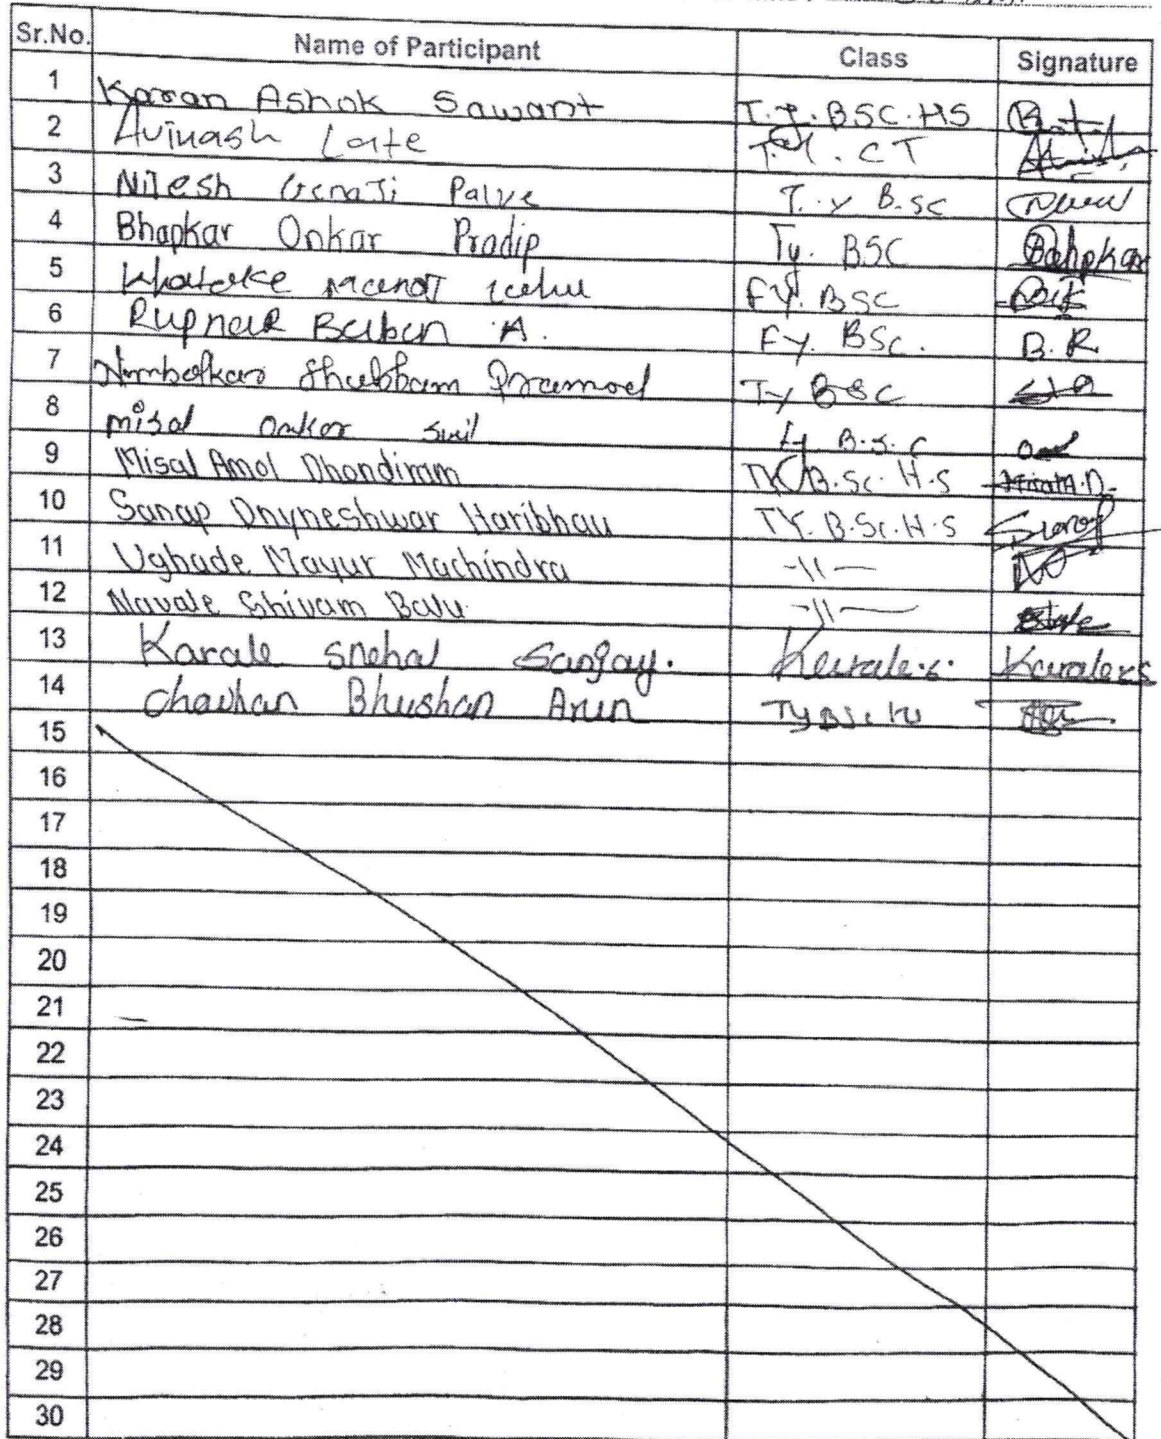 Sr.No. Name of Participant Class Signature
1 Karan Ashok Sawant T.Y.BSC.HS
2 Avinash Late T.Y. CT
3 Nilesh Genaji Palve T.Y B.sc
4 Bhapkar Onkar Pradip Ty. BSC Bahpkar
5 FY. BSC
6 Rupnaur Baban A. Fy. BSc. B.R
7 Nimbalkar Shubham Pramod Ty BSC
8 misal onkar B.S.C
9 Misal Amol Dhondiram TY B.Sc. H.S Misal A.D.
10 Sanap Dnyneshwar Haribhau TY. B.Sc. H.S Sanap
11 Ughade Mayur Machindra -11-
12 Navale Shivam Balu -11-
13 Karale Snehal Sanjay. Karale.s. Karale.s
14 Chavhan Bhushan Arun TyBSc
15
16
17
18
19
20
21
22
23
24
25
26
27
28
29
30